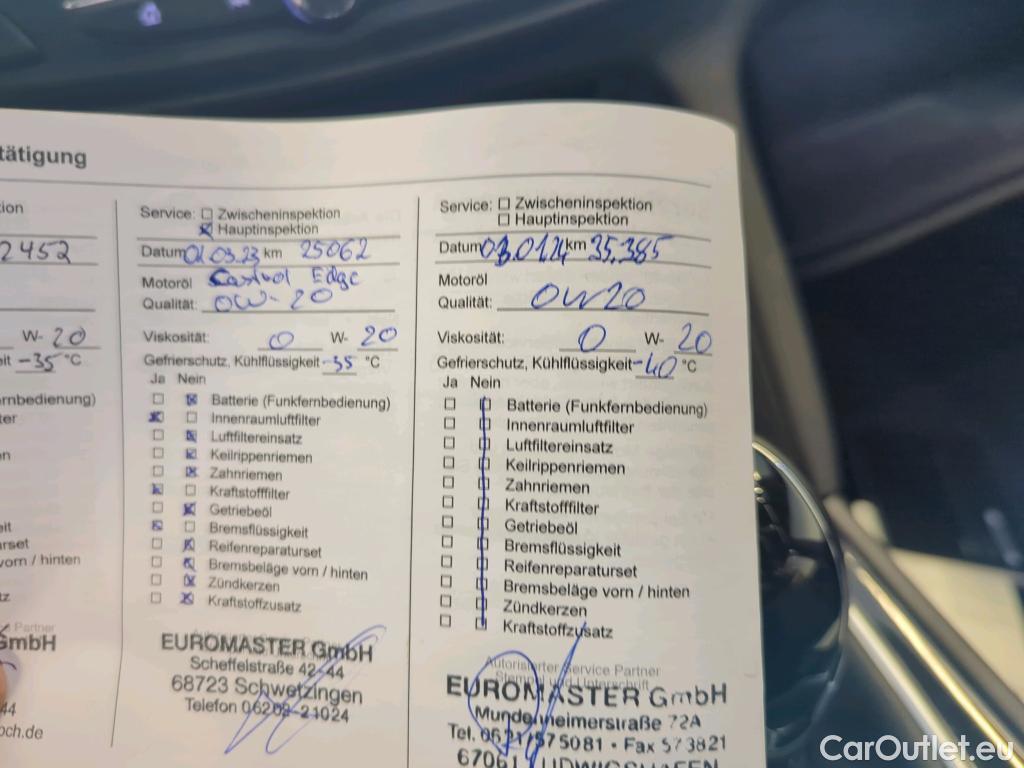 tätigung
tion
2452
W- 20
eit -35 °C
ernbedienung)
ter
en
eit
rset
vorn / hinten
tz
e Partner
GmbH
44
och.de
Service: Zwischeninspektion
Hauptinspektion
Datum 01.03.23 km 25062
Motoröl Castrol Edge
Qualität: 0W-20
Viskosität: 0 W- 20
Gefrierschutz, Kühlflüssigkeit -35 °C
Ja Nein
Batterie (Funkfernbedienung)
Innenraumluftfilter
Luftfiltereinsatz
Keilrippenriemen
Zahnriemen
Kraftstofffilter
Getriebeöl
Bremsflüssigkeit
Reifenreparaturset
Bremsbeläge vorn / hinten
Zündkerzen
Kraftstoffzusatz
EUROMASTER GmbH
Scheffelstraße 42-44
68723 Schwetzingen
Telefon 06202-21024
Service: Zwischeninspektion
Hauptinspektion
Datum 03.01.24 km 35.385
Motoröl
Qualität: 0W20
Viskosität: 0 W- 20
Gefrierschutz, Kühlflüssigkeit -40 °C
Ja Nein
Batterie (Funkfernbedienung)
Innenraumluftfilter
Luftfiltereinsatz
Keilrippenriemen
Zahnriemen
Kraftstofffilter
Getriebeöl
Bremsflüssigkeit
Reifenreparaturset
Bremsbeläge vorn / hinten
Zündkerzen
Kraftstoffzusatz
Autorisierter Service Partner
Stempel und Unterschrift
EUROMASTER GmbH
Mundenheimerstraße 72A
Tel. 0621/575081 · Fax 573821
67061 LUDWIGSHAFEN
CarOutlet.eu